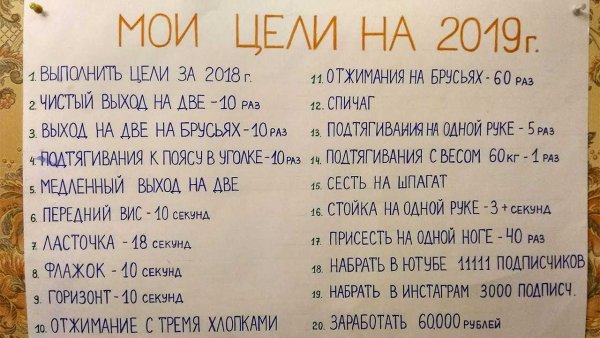 МОИ ЦЕЛИ НА 2019г.
1. ВЫПОЛНИТЬ ЦЕЛИ ЗА 2018 г.
2. ЧИСТЫЙ ВЫХОД НА ДВЕ - 10 РАЗ
3. ВЫХОД НА ДВЕ НА БРУСЬЯХ - 10 РАЗ
4. ПОДТЯГИВАНИЯ К ПОЯСУ В УГОЛКЕ - 10 РАЗ
5. МЕДЛЕННЫЙ ВЫХОД НА ДВЕ
6. ПЕРЕДНИЙ ВИС - 10 СЕКУНД
7. ЛАСТОЧКА - 18 СЕКУНД
8. ФЛАЖОК - 10 СЕКУНД
9. ГОРИЗОНТ - 10 СЕКУНД
10. ОТЖИМАНИЕ С ТРЕМЯ ХЛОПКАМИ
11. ОТЖИМАНИЯ НА БРУСЬЯХ - 60 РАЗ
12. СПИЧАГ
13. ПОДТЯГИВАНИЯ НА ОДНОЙ РУКЕ - 5 РАЗ
14. ПОДТЯГИВАНИЯ С ВЕСОМ 60 КГ - 1 РАЗ
15. СЕСТЬ НА ШПАГАТ
16. СТОЙКА НА ОДНОЙ РУКЕ - 3 + СЕКУНД
17. ПРИСЕСТЬ НА ОДНОЙ НОГЕ - 40 РАЗ
18. НАБРАТЬ В ЮТУБЕ 11111 ПОДПИСЧИКОВ
19. НАБРАТЬ В ИНСТАГРАМ 3000 ПОДПИСЧ.
20. ЗАРАБОТАТЬ 60.000 РУБЛЕЙ